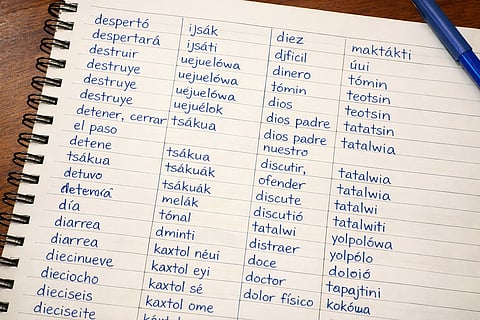 despertó ijsák diez maktákti
despertará ijsáti djficil úui
destruir uejuelówa dinero tómin
destruye uejuelówa tómin teotsin
destruye uejuelówa dios teotsin
destruye uejuélok dios padre tatatsin
detener, cerrar tsákua dios padre tatalwia
el paso nuestro
detene tsákua discutir, tatalwia
tsákua tsákuák ofender tatalwia
detuvo tsákuák discute tatalwi
detemrá melák discutió tatalwiti
día tónal tatalwi yolpolówa
diarrea dminti distraer yolpólo
diarrea kaxtol néui doce doloió
diecinueve kaxtol eyi doctor tapajtini
dieciocho kaxtol sé dolor físico kokówa
dieciseis kaxtol ome
dieciseite